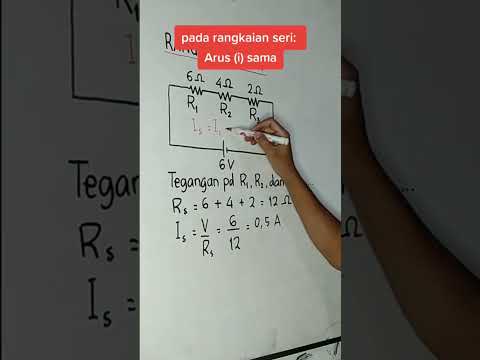 pada rangkaian seri:
Arus (i) sama
6Ω 4Ω 2Ω
R₁ R₂
I_s = I₁
6V
Tegangan pd R₁, R₂, dan ...
R_s = 6 + 4 + 2 = 12 Ω
I_s = V/R_s = 6/12 = 0,5 A
R_s =
I_s =